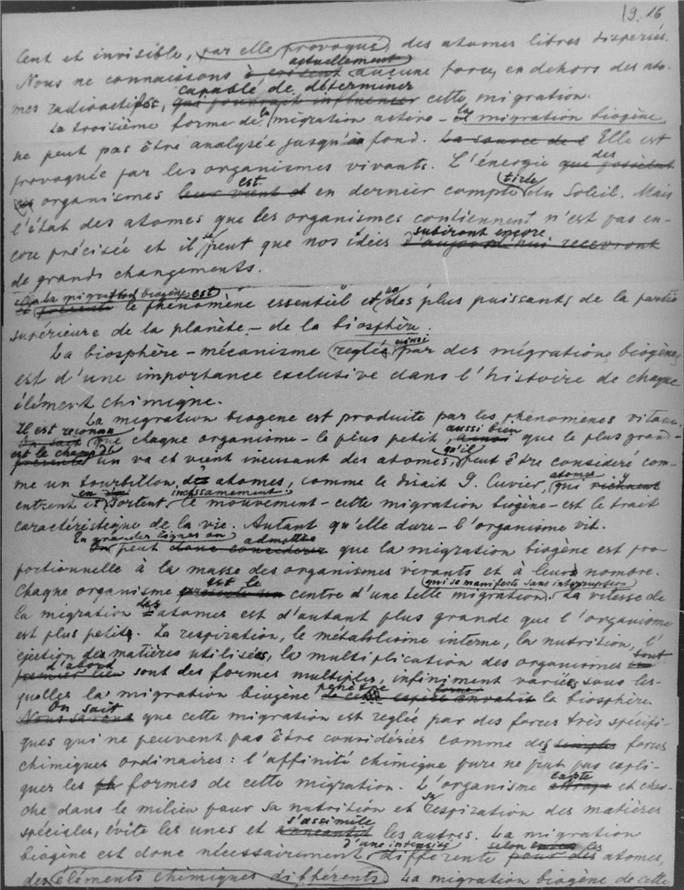 19. 16
lent et invisible, par elle provoqué, des atomes libres dispersés.
Nous ne connaissons actuellement aucune force, en dehors des ato-
mes radioactifs, capable de déterminer cette migration.
La troisième forme de la migration active – la migration biogène
ne peut pas être analysée jusqu'au fond. La source de l Elle est
provoquée par les organismes vivants. L'énergie des
organismes est en dernier compte tirée du Soleil. Mais
l'état des atomes que les organismes contiennent n'est pas en-
core précisée et il se peut que nos idées subiront encore
de grands changements.
La migration biogène est le phénomène essentiel et un des plus puissants de la partie
supérieure de la planète – de la biosphère.
La biosphère – mécanisme réglé ainsi par des migrations biogènes,
est d'une importance exclusive dans l'histoire de chaque
élément chimique.
La migration biogène est produite par les phénomènes vitaux.
Il est reconnu que chaque organisme – le plus petit, aussi bien que le plus grand –
est le champ de un va et vient incessant des atomes, qu'il peut être considéré com-
me un tourbillon des atomes, comme le disait G. Cuvier,
entrent et en sortent incessamment, le mouvement – cette migration biogène – est le trait
caractéristique de la vie. Autant qu'elle dure – l'organisme vit.
En grandes lignes on peut admettre que la migration biogène est pro-
portionnelle à la masse des organismes vivants et à leur nombre.
Chaque organisme est le centre d'une telle migration qui se manifeste sans interruption. La vitesse de
la migration des atomes est d'autant plus grande que l'organisme
est plus petit. La respiration, le métabolisme interne, la nutrition, l'
éjection des matières utilisées, la multiplication des organismes
d'abord sont des formes multiples, infiniment variées sous les-
quelles la migration biogène pénètre la biosphère.
On sait que cette migration est reglée par des forces très spécifi-
ques qui ne peuvent pas être considérées comme des forces
chimiques ordinaires: l'affinité chimique pure ne peut pas expli-
quer les formes de cette migration. L'organisme capte et cher-
che dans le milieu pour sa nutrition et la respiration des matières
spéciales, évite les unes et s'assimile les autres. La migration
biogène est donc nécessairement d'une intensité différente selon les atomes,
des éléments chimiques différents. La migration biogène de cette